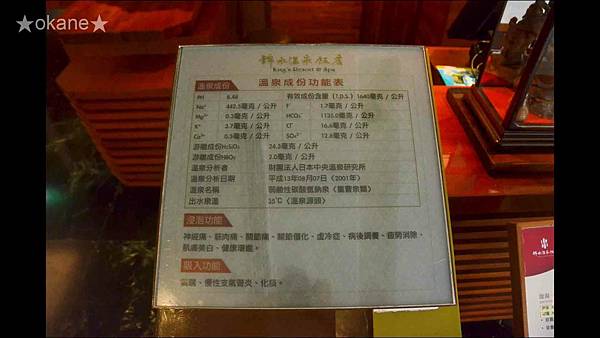 ★okane★
錦水溫泉飯店
King's Resort & Spa
溫泉成份
溫泉成份功能表
PH 8.48 有效成份含量(T.D.S.) 1640毫克/公升
Na⁺ 442.5毫克/公升 F⁻ 1.7毫克/公升
Mg²⁺ 0.3毫克/公升 HCO₃⁻ 1135.0毫克/公升
K⁺ 3.7毫克/公升 Cl⁻ 16.6毫克/公升
Ca²⁺ 0.3毫克/公升 SO₄²⁻ 12.8毫克/公升
游離成份H₂SiO₃ 24.3毫克/公升
游離成份HBO₂ 2.0毫克/公升
溫泉分析者 財團法人日本中央溫泉研究所
溫泉分析日期 平成13年08月07日(2001年)
溫泉名稱 弱鹼性碳酸氫鈉泉〈重曹泉類〉
出水泉溫 35℃〈溫泉源頭〉
浸泡功能
神經痛、筋肉痛、關節痛、關節僵化、虛冷症、病後調養、疲勞消除、
肌膚美白、健康增進。
吸入功能
氣喘、慢性支氣管炎、化痰。